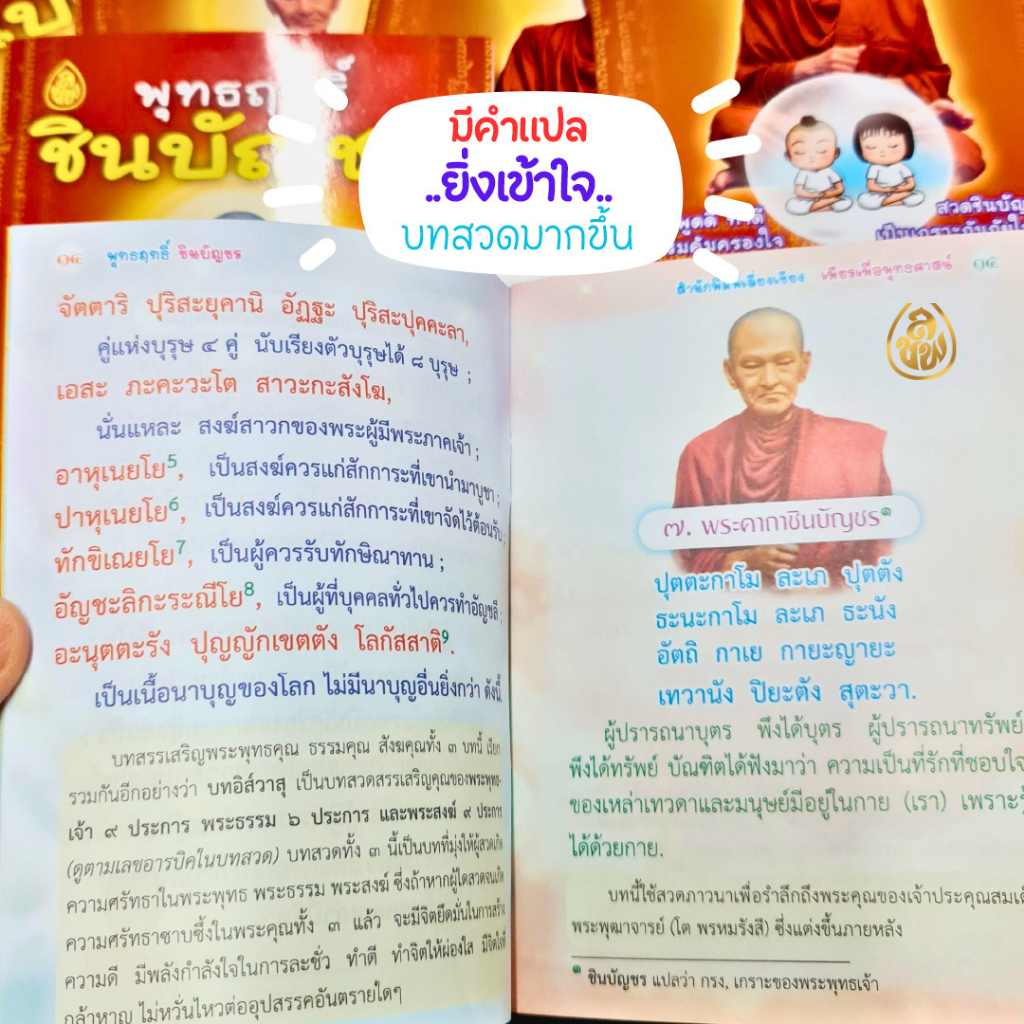 พุทธฤทธิ์
มีคำแปล
..ยิ่งเข้าใจ..
บทสวดมากขึ้น
๑๔ พุทธฤทธิ์ ชินบัญชร
จัตตาริ ปุริสะยุคานิ อัฏฐะ ปุริสะปุคคะลา,
คู่แห่งบุรุษ ๔ คู่ นับเรียงตัวบุรุษได้ ๘ บุรุษ ;
เอสะ ภะคะวะโต สาวะกะสังโฆ,
นั่นแหละ สงฆ์สาวกของพระผู้มีพระภาคเจ้า ;
อาหุเนยโย5, เป็นสงฆ์ควรแก่สักการะที่เขานำมาบูชา ;
ปาหุเนยโย6, เป็นสงฆ์ควรแก่สักการะที่เขาจัดไว้ต้อนรับ ;
ทักขิเณยโย7, เป็นผู้ควรรับทักษิณาทาน ;
อัญชะลิกะระณีโย8, เป็นผู้ที่บุคคลทั่วไปควรทำอัญชลี ;
อะนุตตะรัง ปุญญักเขตตัง โลกัสสาติ9.
เป็นเนื้อนาบุญของโลก ไม่มีนาบุญอื่นยิ่งกว่า ดังนี้
บทสรรเสริญพระพุทธคุณ ธรรมคุณ สังฆคุณทั้ง ๓ บทนี้ เรียก
รวมกันอีกอย่างว่า บทอิส์วาสุ เป็นบทสวดสรรเสริญคุณของพระพุทธ-
เจ้า ๙ ประการ พระธรรม ๖ ประการ และพระสงฆ์ ๙ ประการ
(ดูตามเลขอารบิคในบทสวด) บทสวดทั้ง ๓ นี้เป็นบทที่มุ่งให้ผู้สวดเกิด
ความศรัทธาในพระพุทธ พระธรรม พระสงฆ์ ซึ่งถ้าหากผู้ใดสวดจนเกิด
ความศรัทธาซาบซึ้งในพระคุณทั้ง ๓ แล้ว จะมีจิตยึดมั่นในการสร้าง
ความดี มีพลังกำลังใจในการละชั่ว ทำดี ทำจิตให้ผ่องใส มีจิตใจที่
กล้าหาญ ไม่หวั่นไหวต่ออุปสรรคอันตรายใดๆ
สวดชินบัญ
สำนักพิมพ์เลี่ยงเชียง เพียรเพื่อพุทธศาสน์ ๑๕
๗. พระคาถาชินบัญชร๑
ปุตตะกาโม ละเภ ปุตตัง
ธะนะกาโม ละเภ ธะนัง
อัตถิ กาเย กายะญายะ
เทวานัง ปิยะตัง สุตะวา.
ผู้ปรารถนาบุตร พึงได้บุตร ผู้ปรารถนาทรัพย์
พึงได้ทรัพย์ บัณฑิตได้ฟังมาว่า ความเป็นที่รักที่ชอบใจ
ของเหล่าเทวดาและมนุษย์มีอยู่ในกาย (เรา) เพราะรู้
ได้ด้วยกาย.
บทนี้ใช้สวดภาวนาเพื่อรำลึกถึงพระคุณของเจ้าประคุณสมเด็
พระพุฒาจารย์ (โต พรหมรังสี) ซึ่งแต่งขึ้นภายหลัง
๑ ชินบัญชร แปลว่า กรง, เกราะของพระพุทธเจ้า